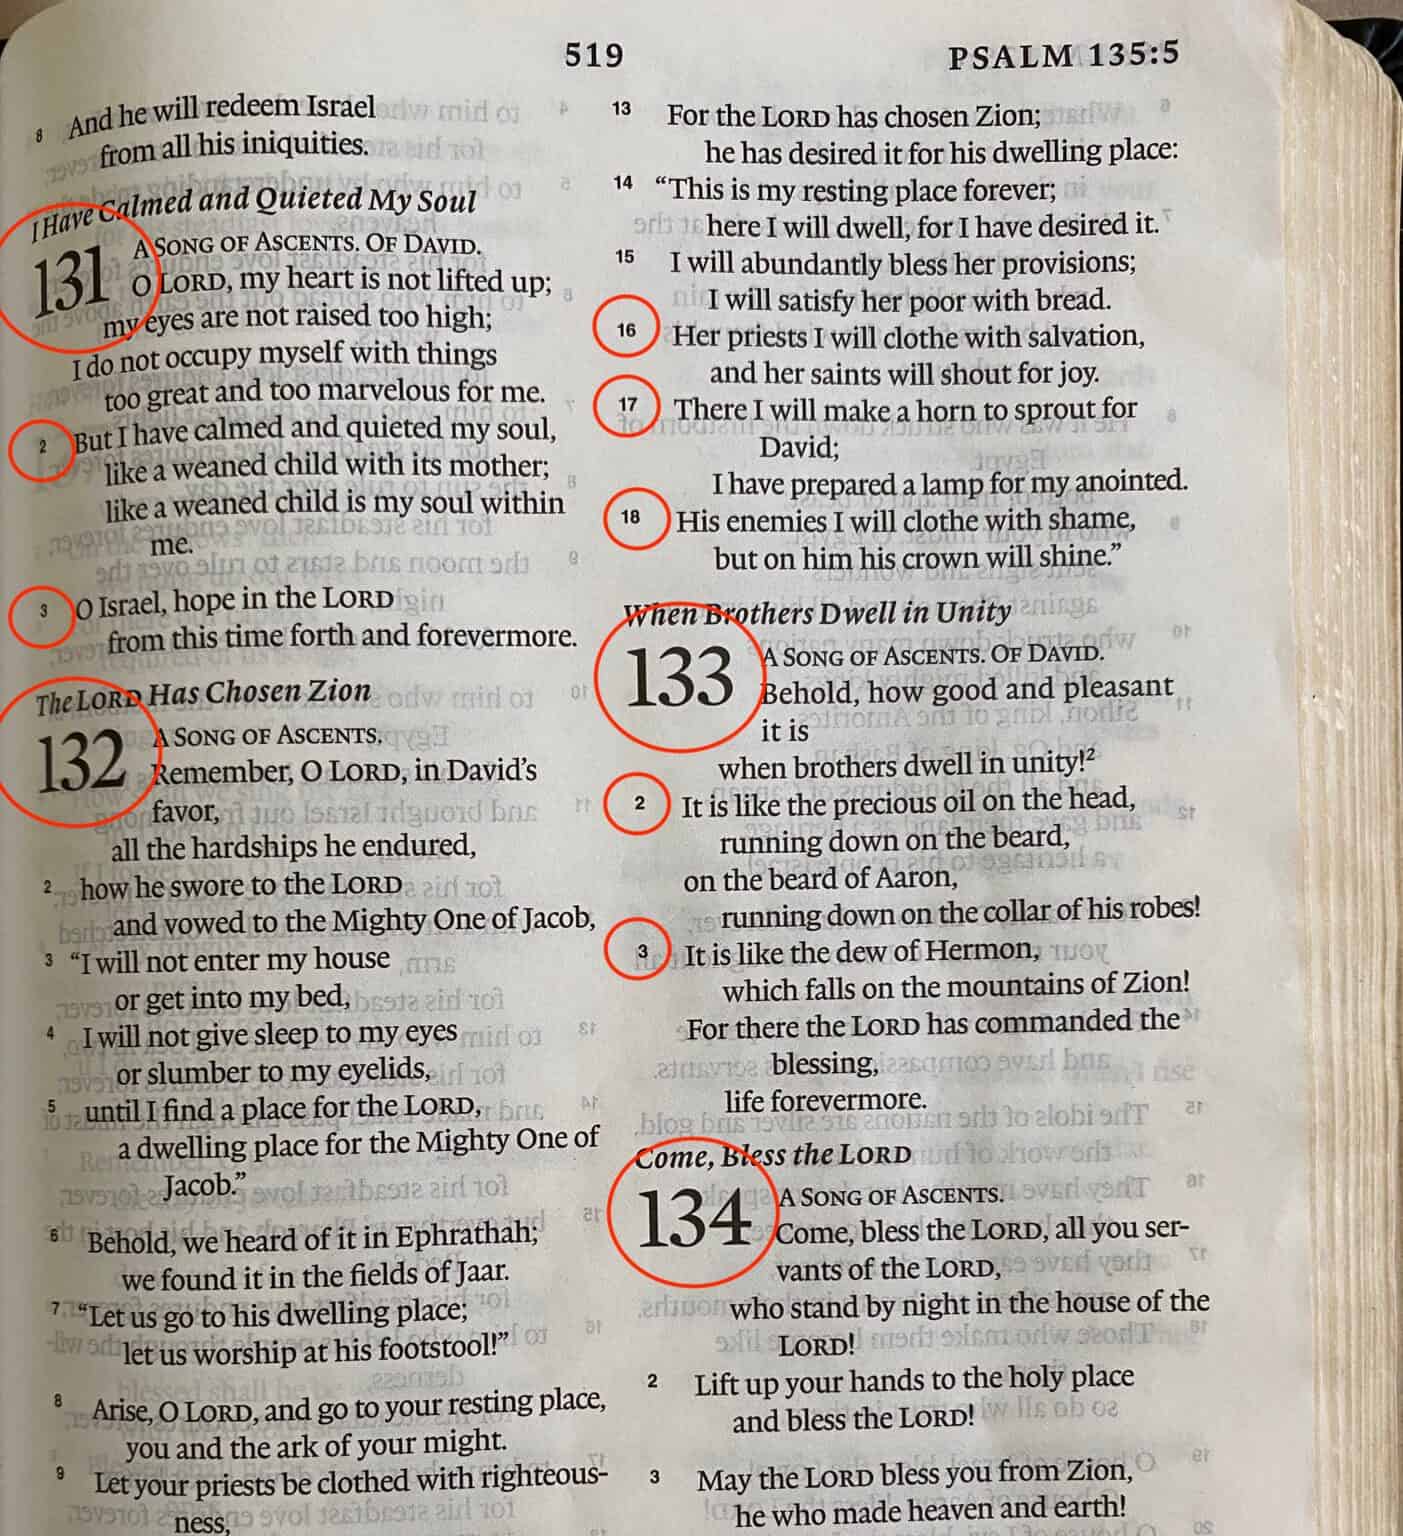 519
PSALM 135:5
8 And he will redeem Israel
from all his iniquities.
I Have Calmed and Quieted My Soul
131 A SONG OF ASCENTS. OF DAVID.
O LORD, my heart is not lifted up;
my eyes are not raised too high;
I do not occupy myself with things
too great and too marvelous for me.
2 But I have calmed and quieted my soul,
like a weaned child with its mother;
like a weaned child is my soul within
me.
3 O Israel, hope in the LORD
from this time forth and forevermore.
The LORD Has Chosen Zion
132 A SONG OF ASCENTS.
Remember, O LORD, in David's
favor,
all the hardships he endured,
2 how he swore to the LORD
and vowed to the Mighty One of Jacob,
3 “I will not enter my house
or get into my bed,
4 I will not give sleep to my eyes
or slumber to my eyelids,
5 until I find a place for the LORD,
a dwelling place for the Mighty One of
Jacob.”
6 Behold, we heard of it in Ephrathah;
we found it in the fields of Jaar.
7 “Let us go to his dwelling place;
let us worship at his footstool!”
8 Arise, O LORD, and go to your resting place,
you and the ark of your might.
9 Let your priests be clothed with righteous-
ness,
13 For the LORD has chosen Zion;
he has desired it for his dwelling place:
14 “This is my resting place forever;
here I will dwell, for I have desired it.
15 I will abundantly bless her provisions;
I will satisfy her poor with bread.
16 Her priests I will clothe with salvation,
and her saints will shout for joy.
17 There I will make a horn to sprout for
David;
I have prepared a lamp for my anointed.
18 His enemies I will clothe with shame,
but on him his crown will shine.”
When Brothers Dwell in Unity
133 A SONG OF ASCENTS. OF DAVID.
Behold, how good and pleasant
it is
when brothers dwell in unity!²
2 It is like the precious oil on the head,
running down on the beard,
on the beard of Aaron,
running down on the collar of his robes!
3 It is like the dew of Hermon,
which falls on the mountains of Zion!
For there the LORD has commanded the
blessing,
life forevermore.
Come, Bless the LORD
134 A SONG OF ASCENTS.
Come, bless the LORD, all you ser-
vants of the LORD,
who stand by night in the house of the
LORD!
2 Lift up your hands to the holy place
and bless the LORD!
3 May the LORD bless you from Zion,
he who made heaven and earth!